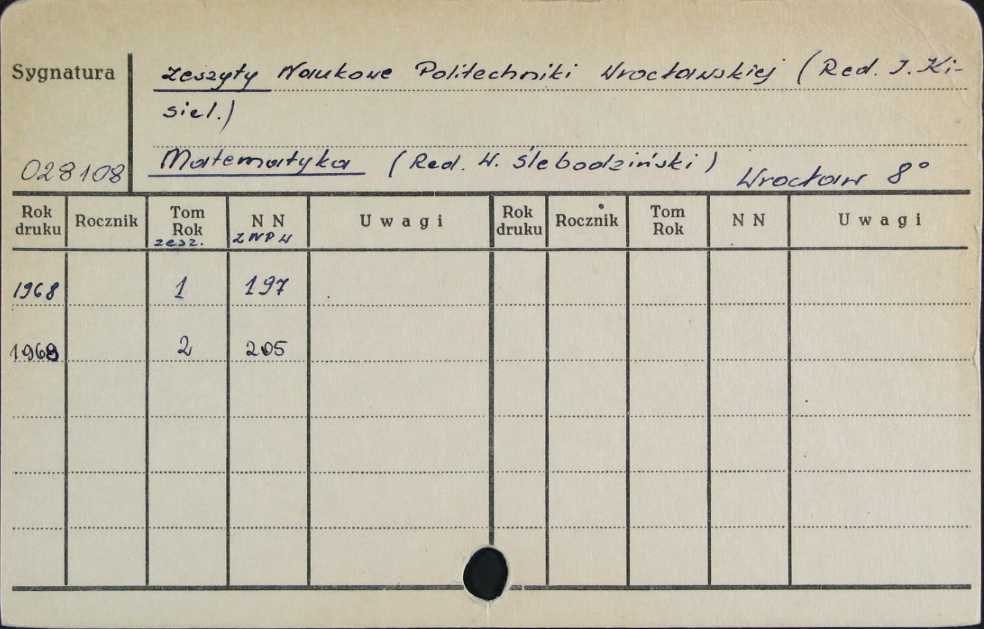 Sygnatura
Zeszyty Naukowe Politechniki Wrocławskiej (Red. I. Ki-
siel.)
028108
Matematyka (Red. W. Ślebodziński) Wrocław 8°
Rok druku Rocznik Tom Rok zesz. N N ZNPW Uwagi Rok druku Rocznik Tom Rok N N Uwagi
1968 1 197
1968 2 205